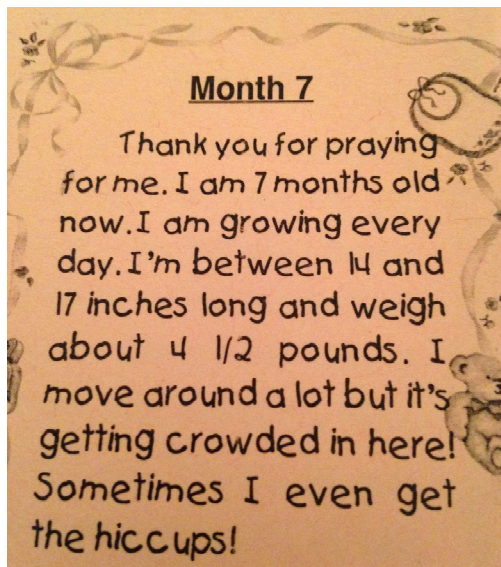 Month 7
Thank you for praying
for me. I am 7 months old
now. I am growing every
day. I'm between 14 and
17 inches long and weigh
about 4 1/2 pounds. I
move around a lot but it's
getting crowded in here!
Sometimes I even get
the hiccups!